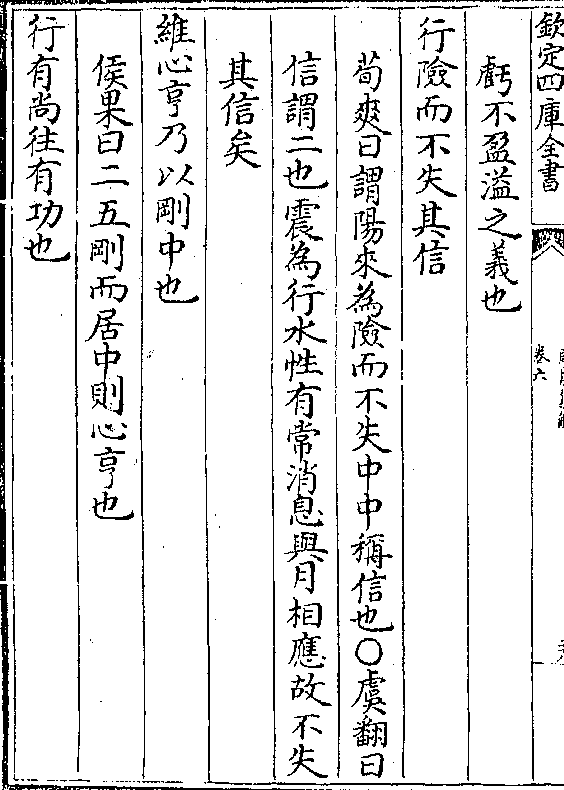 欽定四庫全書
卷六
虧不盈溢之義也
行險而不失其信
荀爽曰謂陽來為險而不失中中稱信也〇虞翻曰
信謂二也震為行水性有常消息與月相應故不失
其信矣
維心亨乃以剛中也
侯果曰二五剛而居中則心亨也
行有尚往有功也